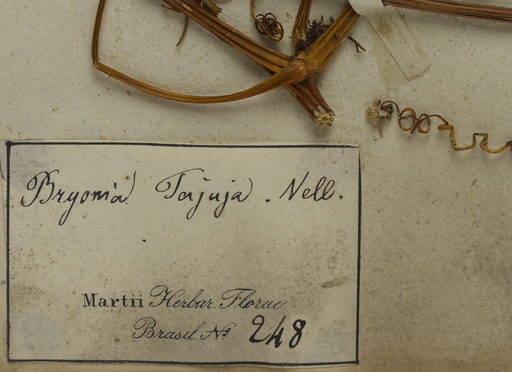 Bryonia Tajuja. Vell.
Martii Herbar. Florae
Brasil. No 248